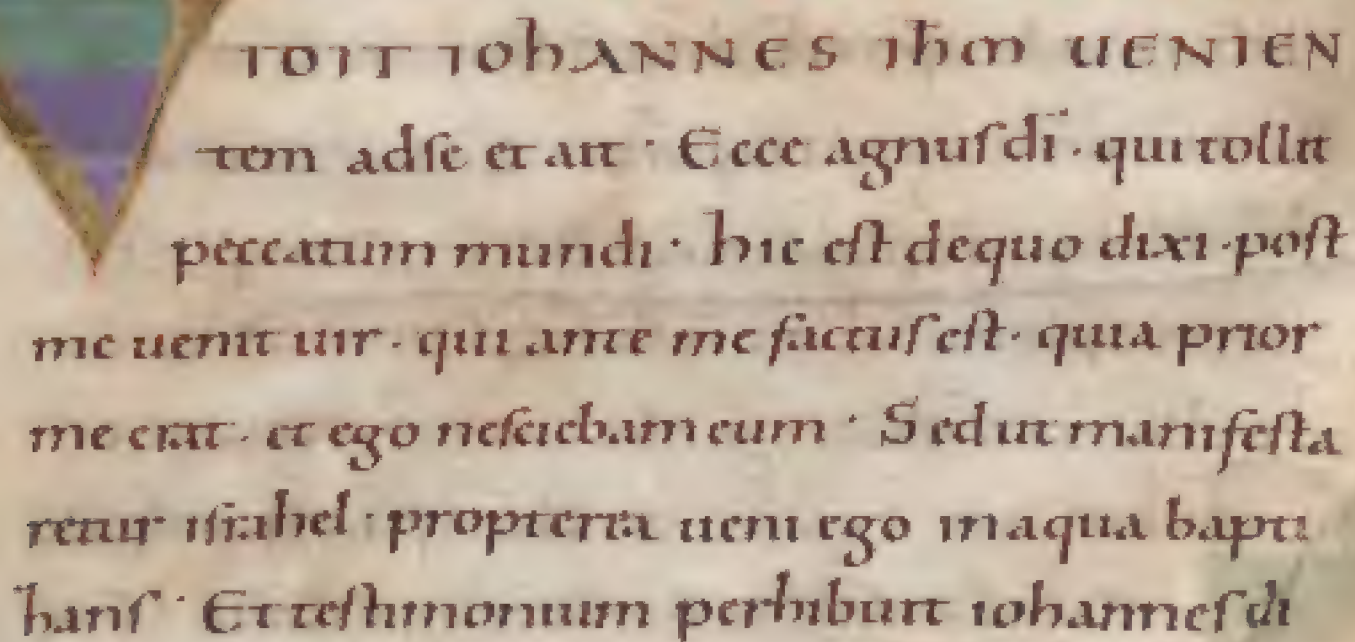 VIDIT IOhANNES ihm UENIEN
tem adse et ait · Ecce agnus di · qui tollit
peccatum mundi · hic est dequo dixi · post
me uenit uir · qui ante me factus est · quia prior
me erat · et ego nesciebam eum · Sed ut manifesta
retur israhel · propterea ueni ego in aqua bapti
hans · Et testimonium perhibuit iohannes di